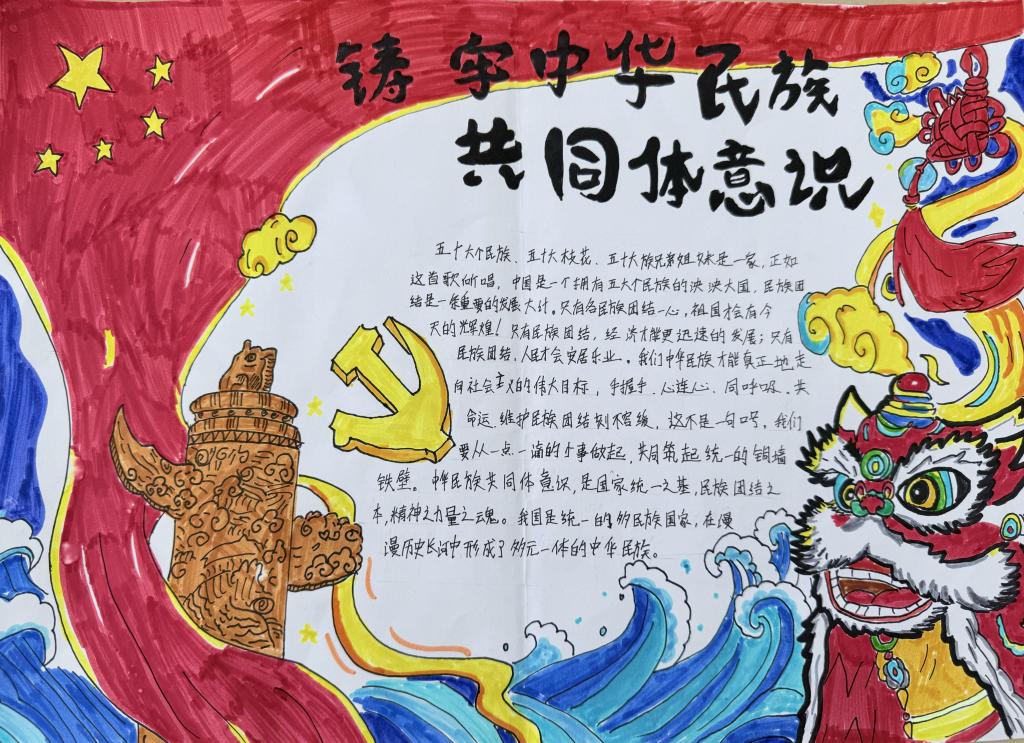 铸牢中华民族
共同体意识
五十六个民族、五十六枝花、五十六族兄弟姐妹是一家,正如
这首歌所唱,中国是一个拥有五十六个民族的泱泱大国,民族团
结是一条重要的发展大计。只有各民族团结一心,祖国才会有今
天的光辉煌!只有民族团结,经济才能更迅速的发展;只有
民族团结,人民才会安居乐业。我们中华民族才能真正地走
向社会主义的伟大目标,手握手、心连心、同呼吸、共
命运,维护民族团结刻不容缓,这不是一句口号。我们
要从一点一滴的小事做起,共同筑起统一的铜墙
铁壁。中华民族共同体意识,是国家统一之基,民族团结之
本,精神之力量之魂。我国是统一的多民族国家,在漫
漫历史长河中形成了多元一体的中华民族。